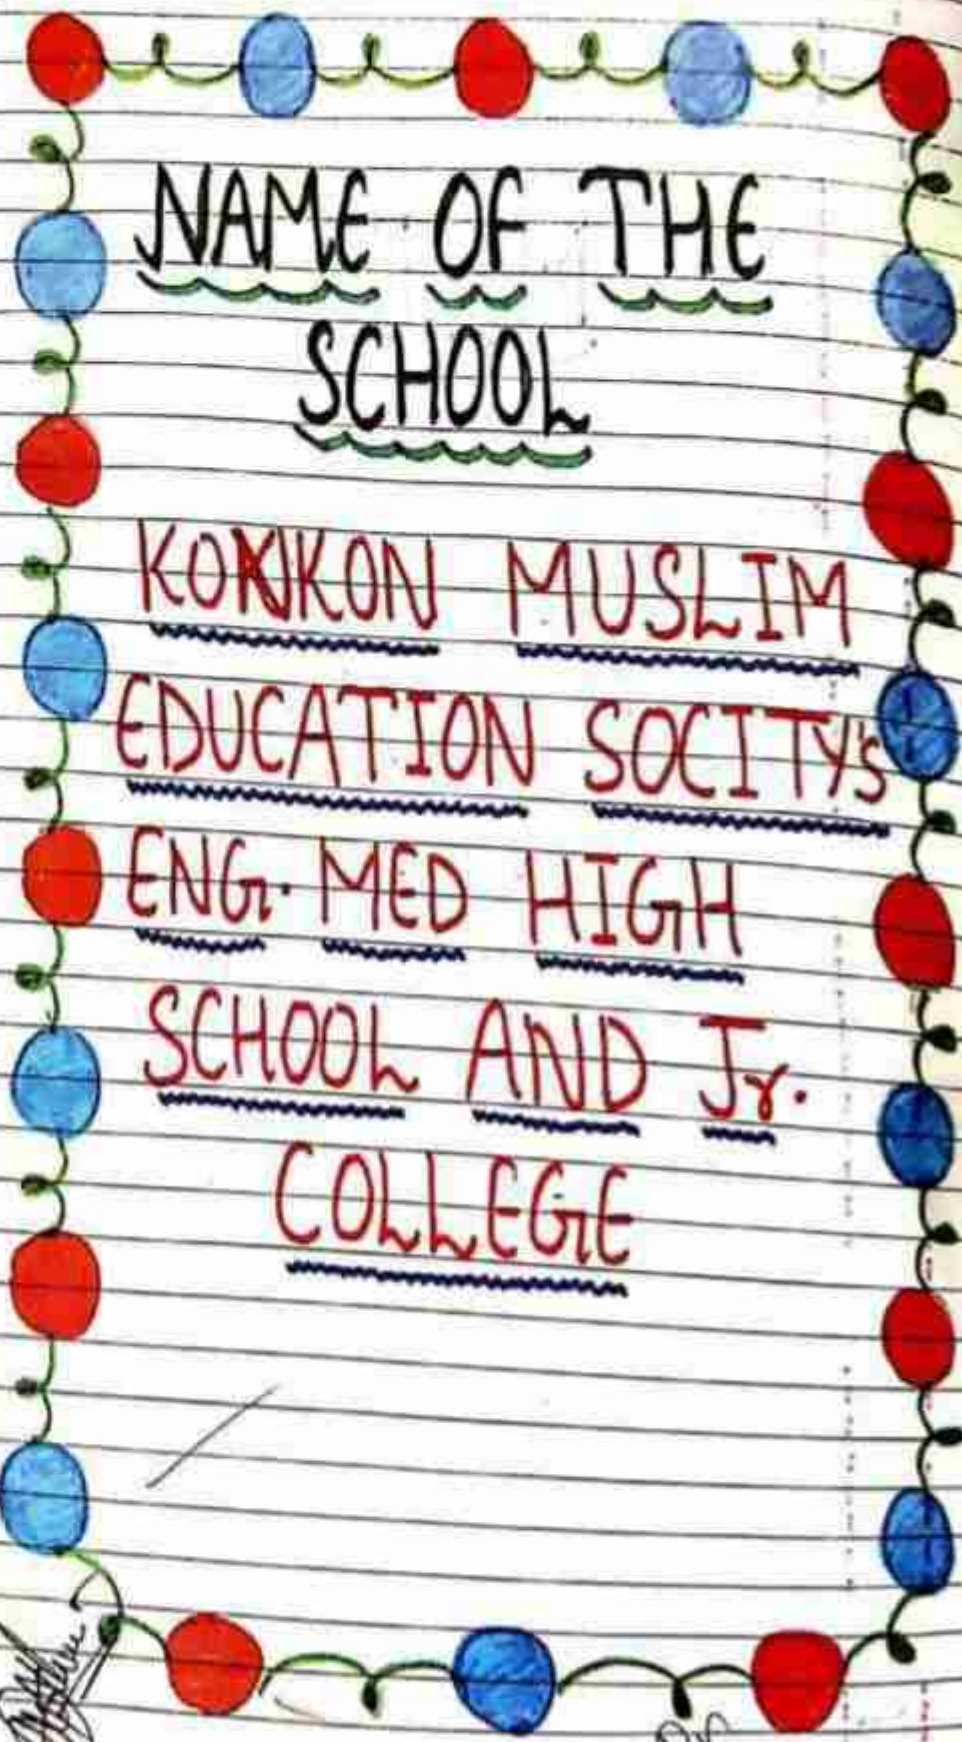 NAME OF THE
SCHOOL
KONKON MUSLIM
EDUCATION SOCITY's
ENG. MED HIGH
SCHOOL AND Jr.
COLLEGE